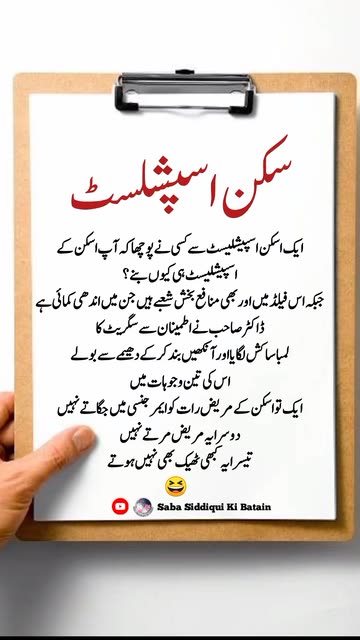 سکن اسپشلسٹ
ایک اسکن اسپیشلیسٹ سے کسی نے پوچھا کہ آپ اسکن کے
اسپیشلیسٹ ہی کیوں بنے؟
جبکہ اس فیلڈ میں اور بھی منافع بخش شعبے ہیں جن میں اندھی کمائی ہے
ڈاکٹر صاحب نے اطمینان سے سگریٹ کا
لمبا سا کش لگایا اور آنکھیں بند کر کے دھیمے سے بولے
اس کی تین وجوہات ہیں
ایک تو اسکن کے مریض رات کو ایمرجنسی میں جگاتے نہیں
دوسرا یہ مریض مرتے نہیں
تیسرا یہ کبھی ٹھیک بھی نہیں ہوتے
😆
Saba Siddiqui Ki Batain